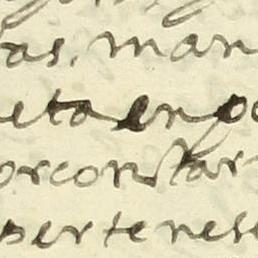 as. man
eta en po
por constar
pertenese